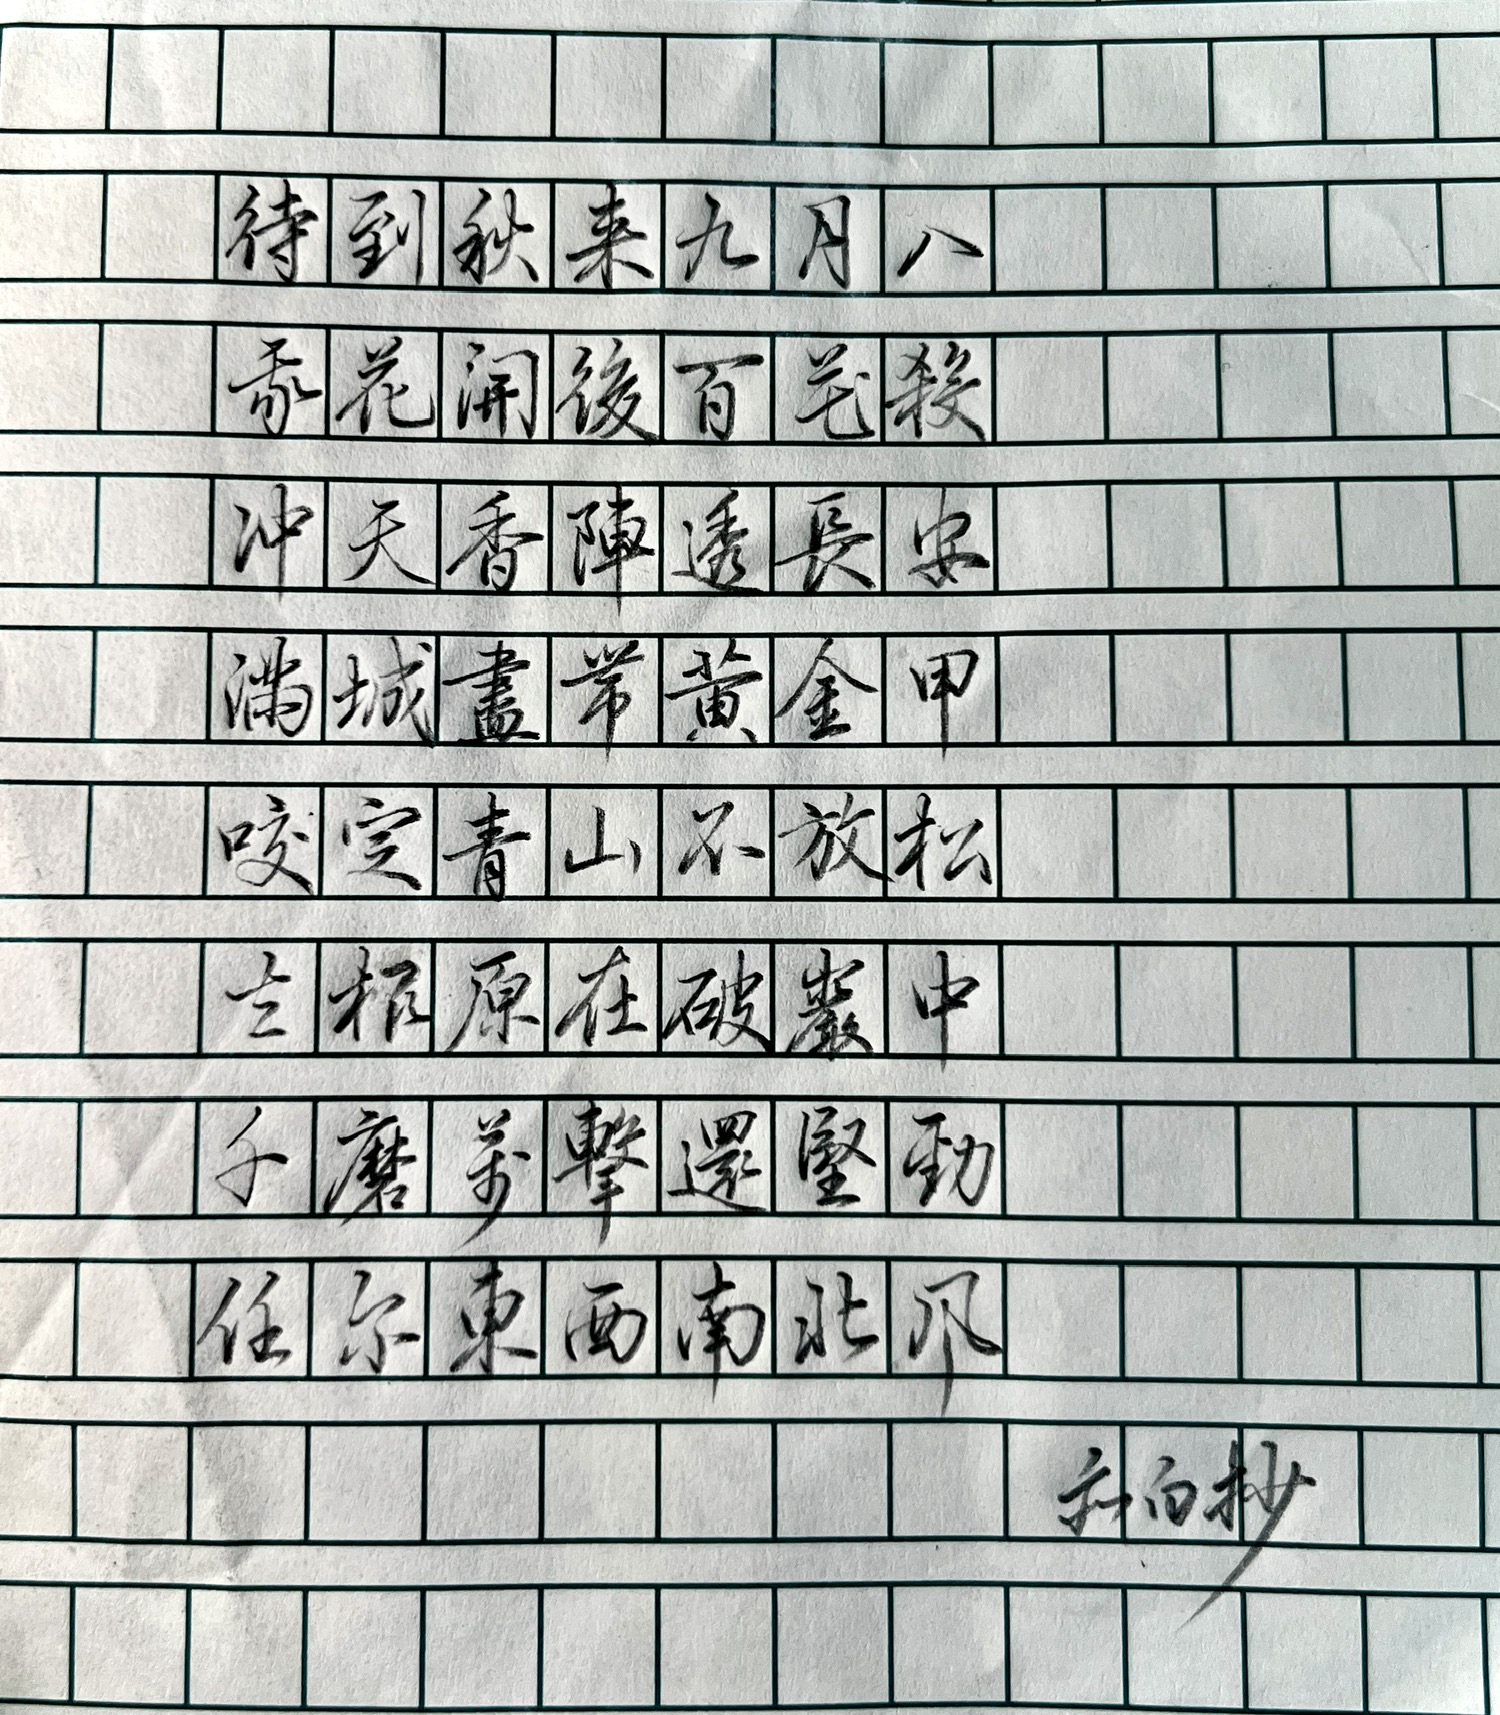 待到秋来九月八
我花開後百花殺
冲天香陣透長安
滿城盡帶黃金甲
咬定青山不放松
立根原在破巖中
千磨萬擊還堅勁
任尔東西南北风
白抄